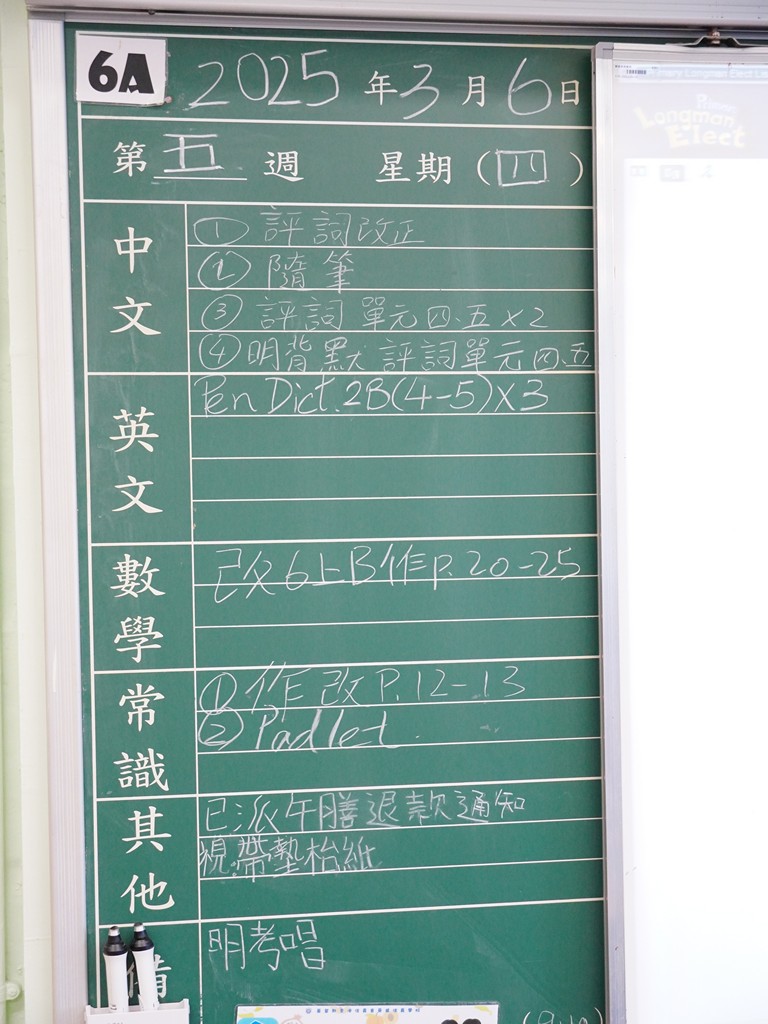 6A
2025年3月6日
第五週 星期(四)
中文
① 評詞改正
② 隨筆
③ 評詞 單元四、五 x2
④ 明背默 評詞單元四、五
英文
Pen Dict. 2B(4-5)x3
數學
改6上B作p.20-25
常識
① 作改P.12-13
② Padlet.
其他
已派午膳退款通知
視帶墊枱紙
備
明考唱
Longman Elect